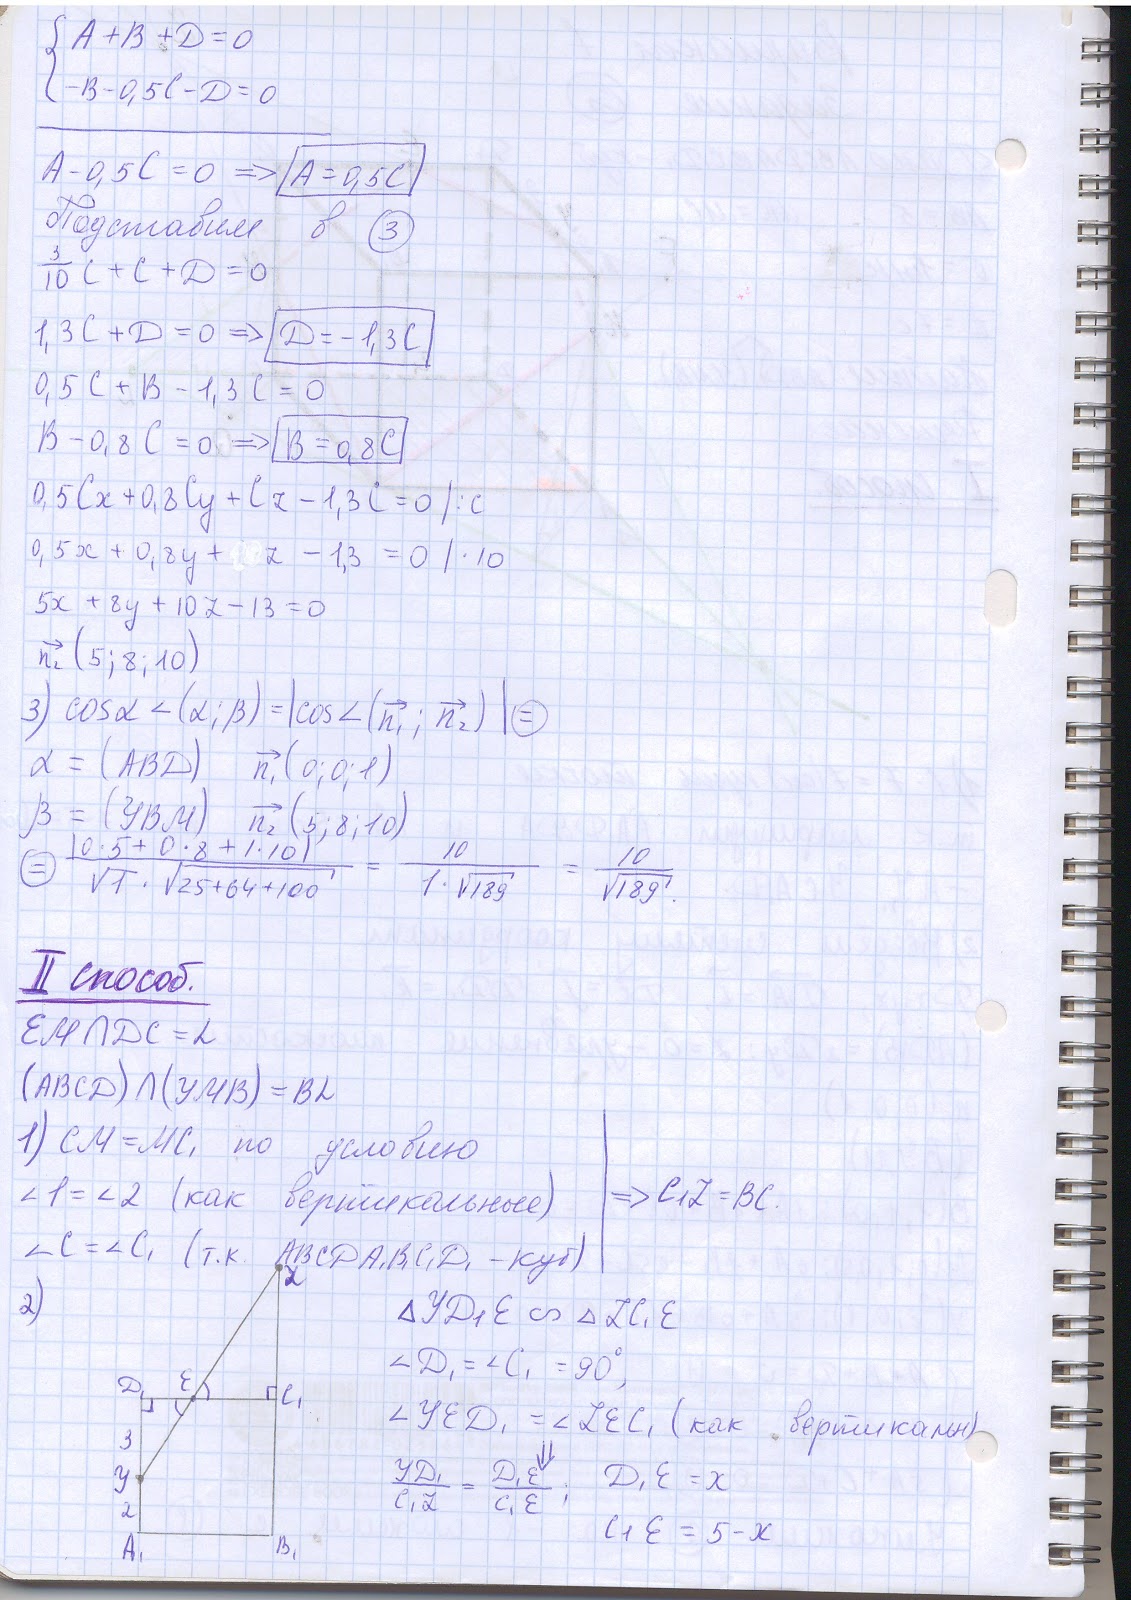 { A + B + D = 0
-B - 0,5C - D = 0
A - 0,5C = 0 => A = 0,5C
Подставим в 3
3/10 C + C + D = 0
1,3C + D = 0 => D = -1,3C
0,5C + B - 1,3C = 0
B - 0,8C = 0 => B = 0,8C
0,5Cx + 0,8Cy + Cz - 1,3C = 0 / :C
0,5x + 0,8y + z - 1,3 = 0 / ·10
5x + 8y + 10z - 13 = 0
n₂ (5; 8; 10)
3) cosα ∠(α; β) = |cos∠(n₁; n₂)| =
α = (ABD) n₁ (0; 0; 1)
β = (YBM) n₂ (5; 8; 10)
= |0·5 + 0·8 + 1·10| / √1 · √25+64+100 = 10 / 1·√189 = 10 / √189.
II способ.
EM ∩ DC = L
(ABCD) ∩ (YMB) = BL
1) CM = MC₁ по условию
∠1 = ∠2 (как вертикальные) => C₁Z = BC.
∠C = ∠C₁ (т.к. ABCDA₁B₁C₁D₁ - куб)
2)
Z
△YD₁E ∽ △ZC₁E
∠D₁ = ∠C₁ = 90°,
D₁ E C₁
∠YED₁ = ∠ZEC₁ (как вертикальн)
3
Y
YD₁/C₁Z = D₁E/C₁E ; D₁E = x
2
C₁E = 5 - x
A₁ B₁